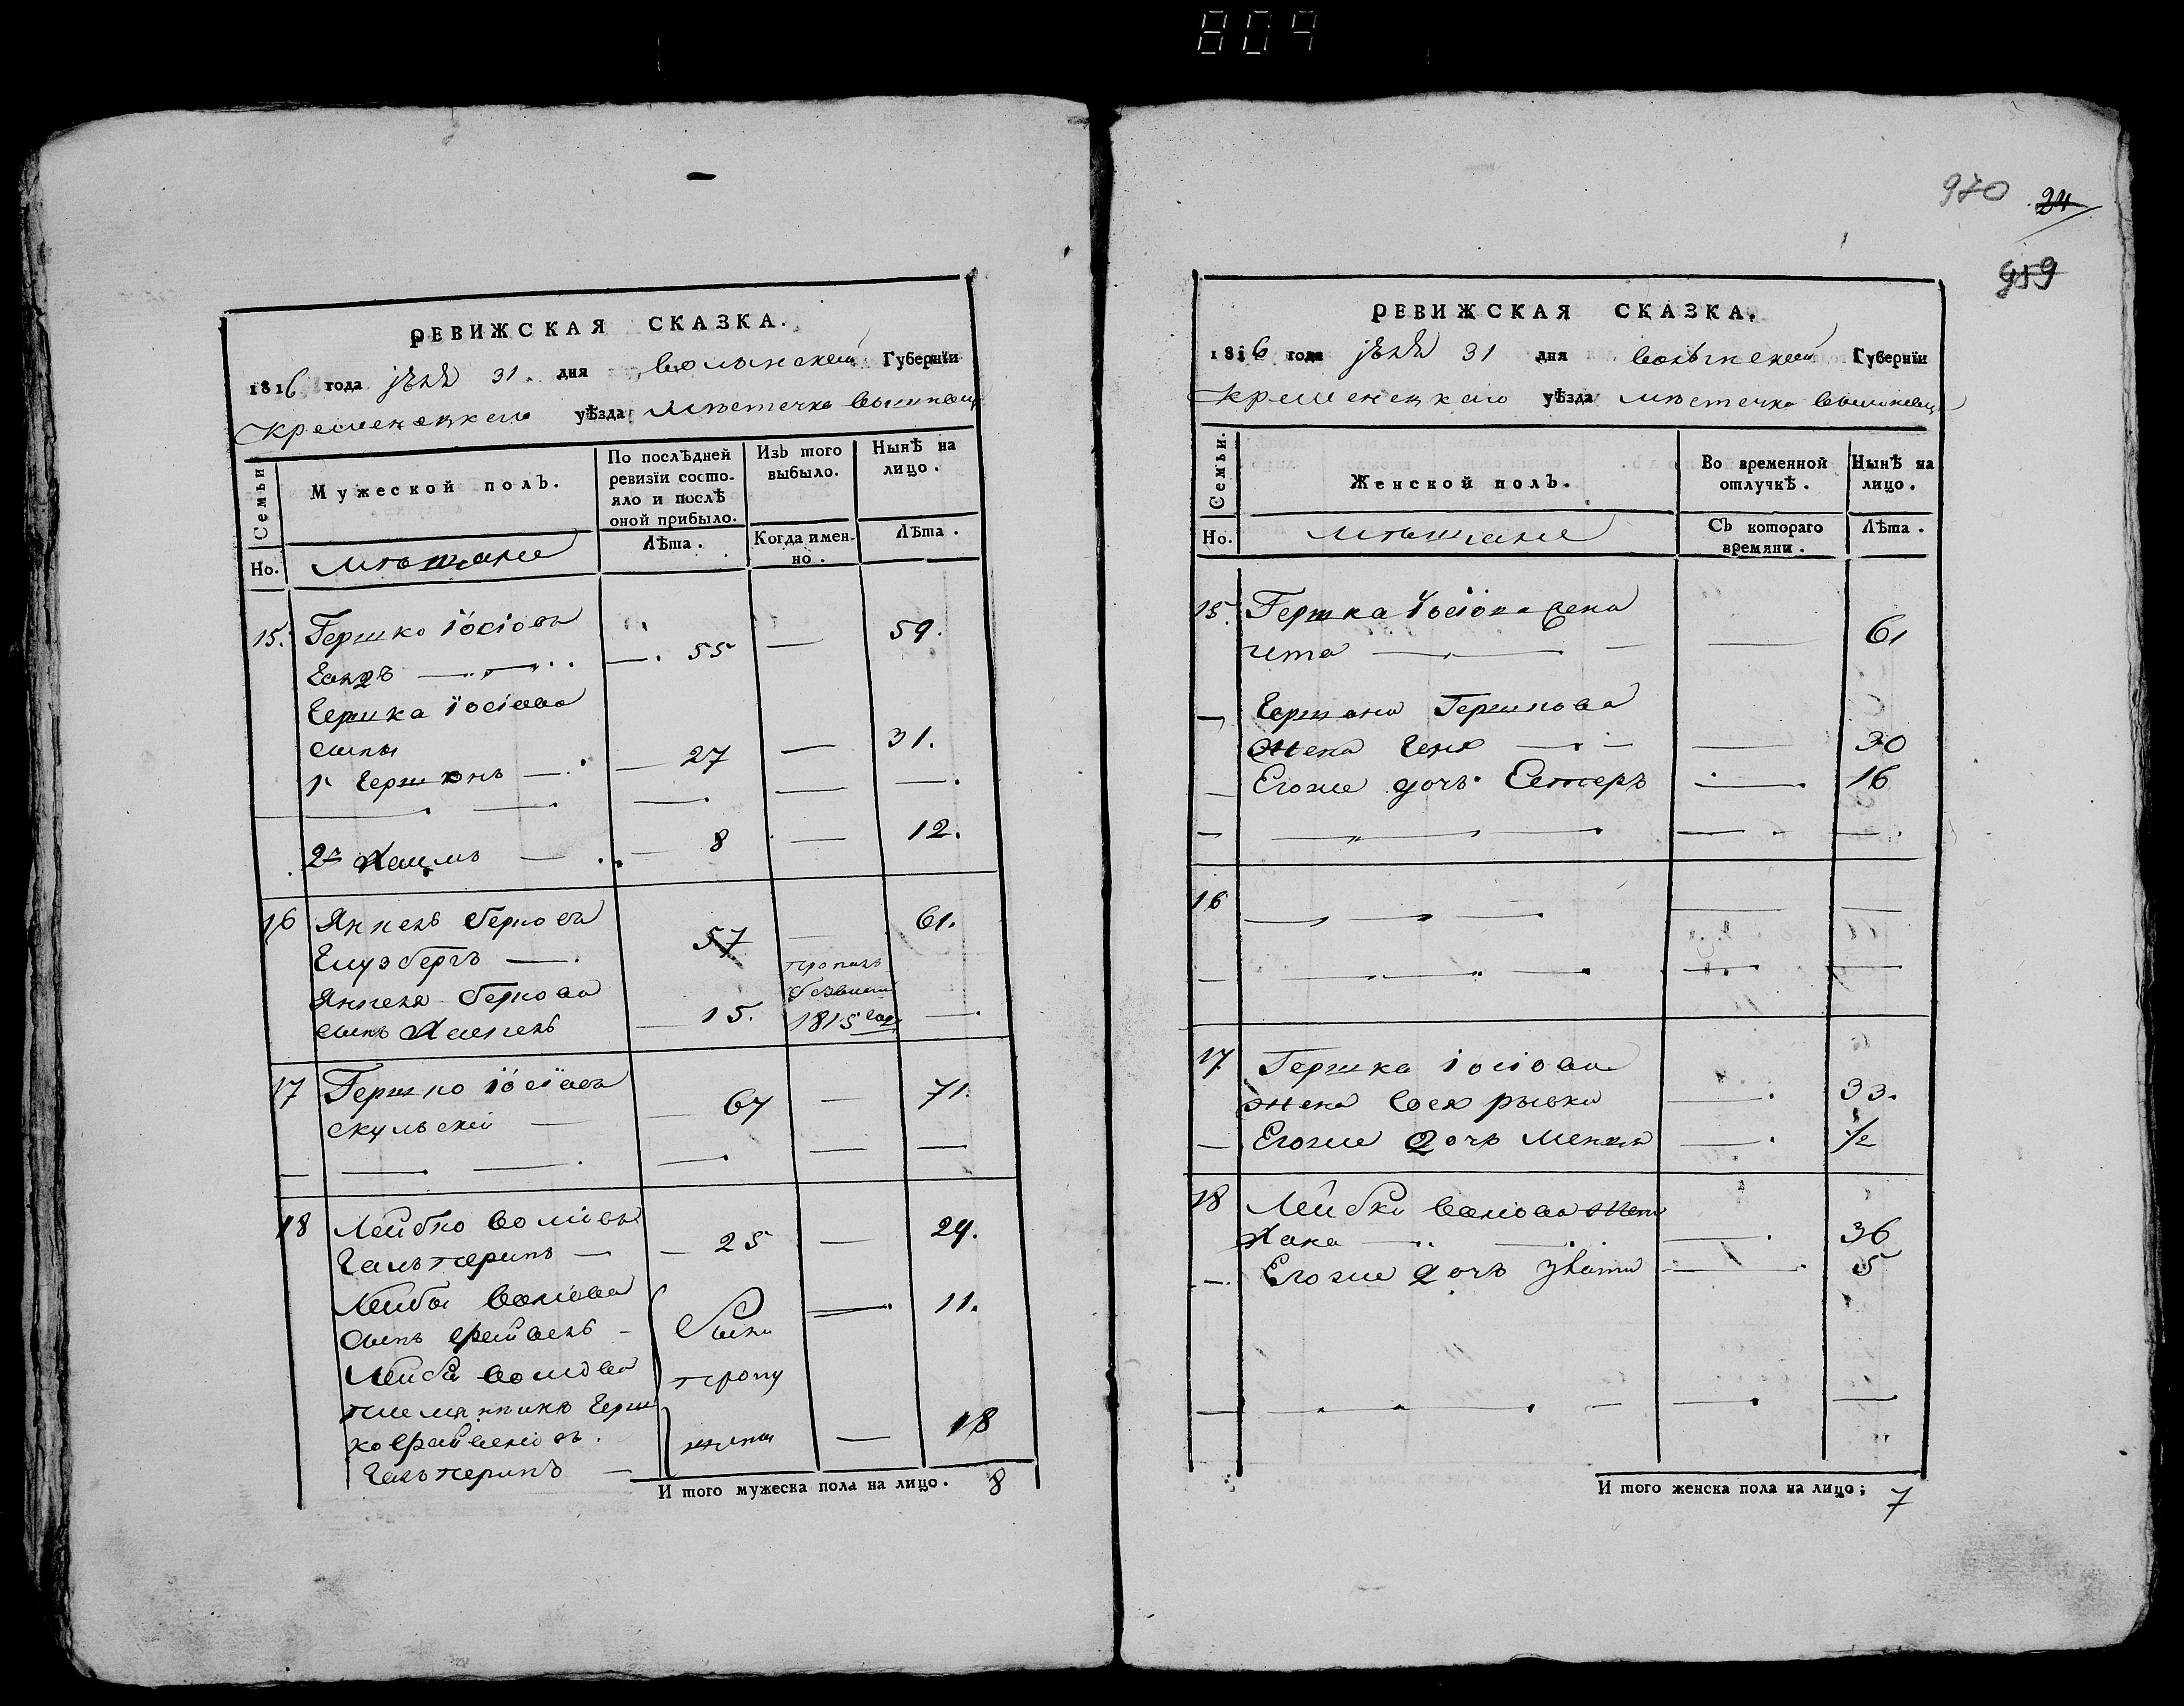 809
РЕВИЖСКАЯ СКАЗКА.
1816 года 31. дня Волынской Губернїи
Кременецкаго уѣзда Мѣстечка
Семьи
Но.
Мужеской полъ.
Мѣщане
По послѣдней ревизїи состо-
яло и послѣ
оной прибыло.
Лѣта.
Изъ того
выбыло.
Когда имен-
но.
Нынѣ на
лицо.
Лѣта.
15. Гершко Іосіовъ
— 55 — 59.
Іосіова
сыны
1й — 27 — 31.
2й Хаимъ — 8 — 12.
16 Янкель Берковъ
57 — 61.
Янкеля Беркова
сынъ — 15. 1815 —
17 Гершко Іосіовъ
скульскій — 67 — 71.
18 Лейбко Волїовъ
Гальперинъ — 25 — 29.
Лейбы Волїова
сынъ Файвель — были — 11.
Лейбы Волїова
племянникъ Герш пропу
ко Файвеліовъ. — 18
Гальперинъ —
И того мужеска пола на лицо. 8
970 24
959
РЕВИЖСКАЯ СКАЗКА.
1816 года 31 дня Волынской Губернїи
Кременецкаго уѣзда Мѣстечка
Семьи.
Но.
Женской полъ.
Мѣщане
Во временной
отлучкѣ.
Съ котораго
времяни.
Нынѣ на
лицо.
Лѣта.
15. Гершка Іосіова жена
— 61
— Гершкова
жена — 30
— Егоже дочь Естеръ — 16
16
17 Гершка Іосіова
жена рывка — 33.
— Егоже дочь — 1/2
18 Лейбки Воліова жена
Хака — 36
— Егоже дочь — 5
И того женска пола на лицо; 7